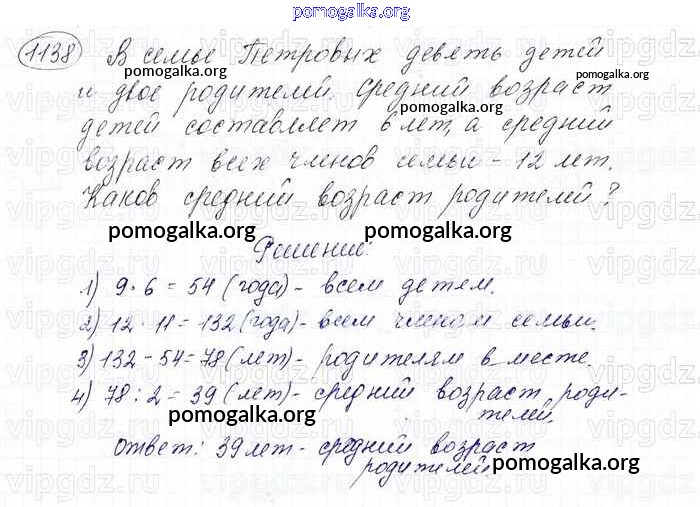 pomogalka.org
1138 В семье Петровых девять детей
pomogalka.org pomogalka.org
и двое родителей. Средний возраст
pomogalka.org
детей составляет 6 лет, а средний
возраст всех членов семьи - 12 лет.
Каков средний возраст родителей?
pomogalka.org pomogalka.org
Решение:
1) 9 · 6 = 54 (года) - всем детям.
2) 12 · 11 = 132 (года) - всем членам семьи.
3) 132 - 54 = 78 (лет) - родителям в месте.
4) 78 : 2 = 39 (лет) - средний возраст роди-
телей.
pomogalka.org
Ответ: 39 лет - средний возраст
родителей.
pomogalka.org